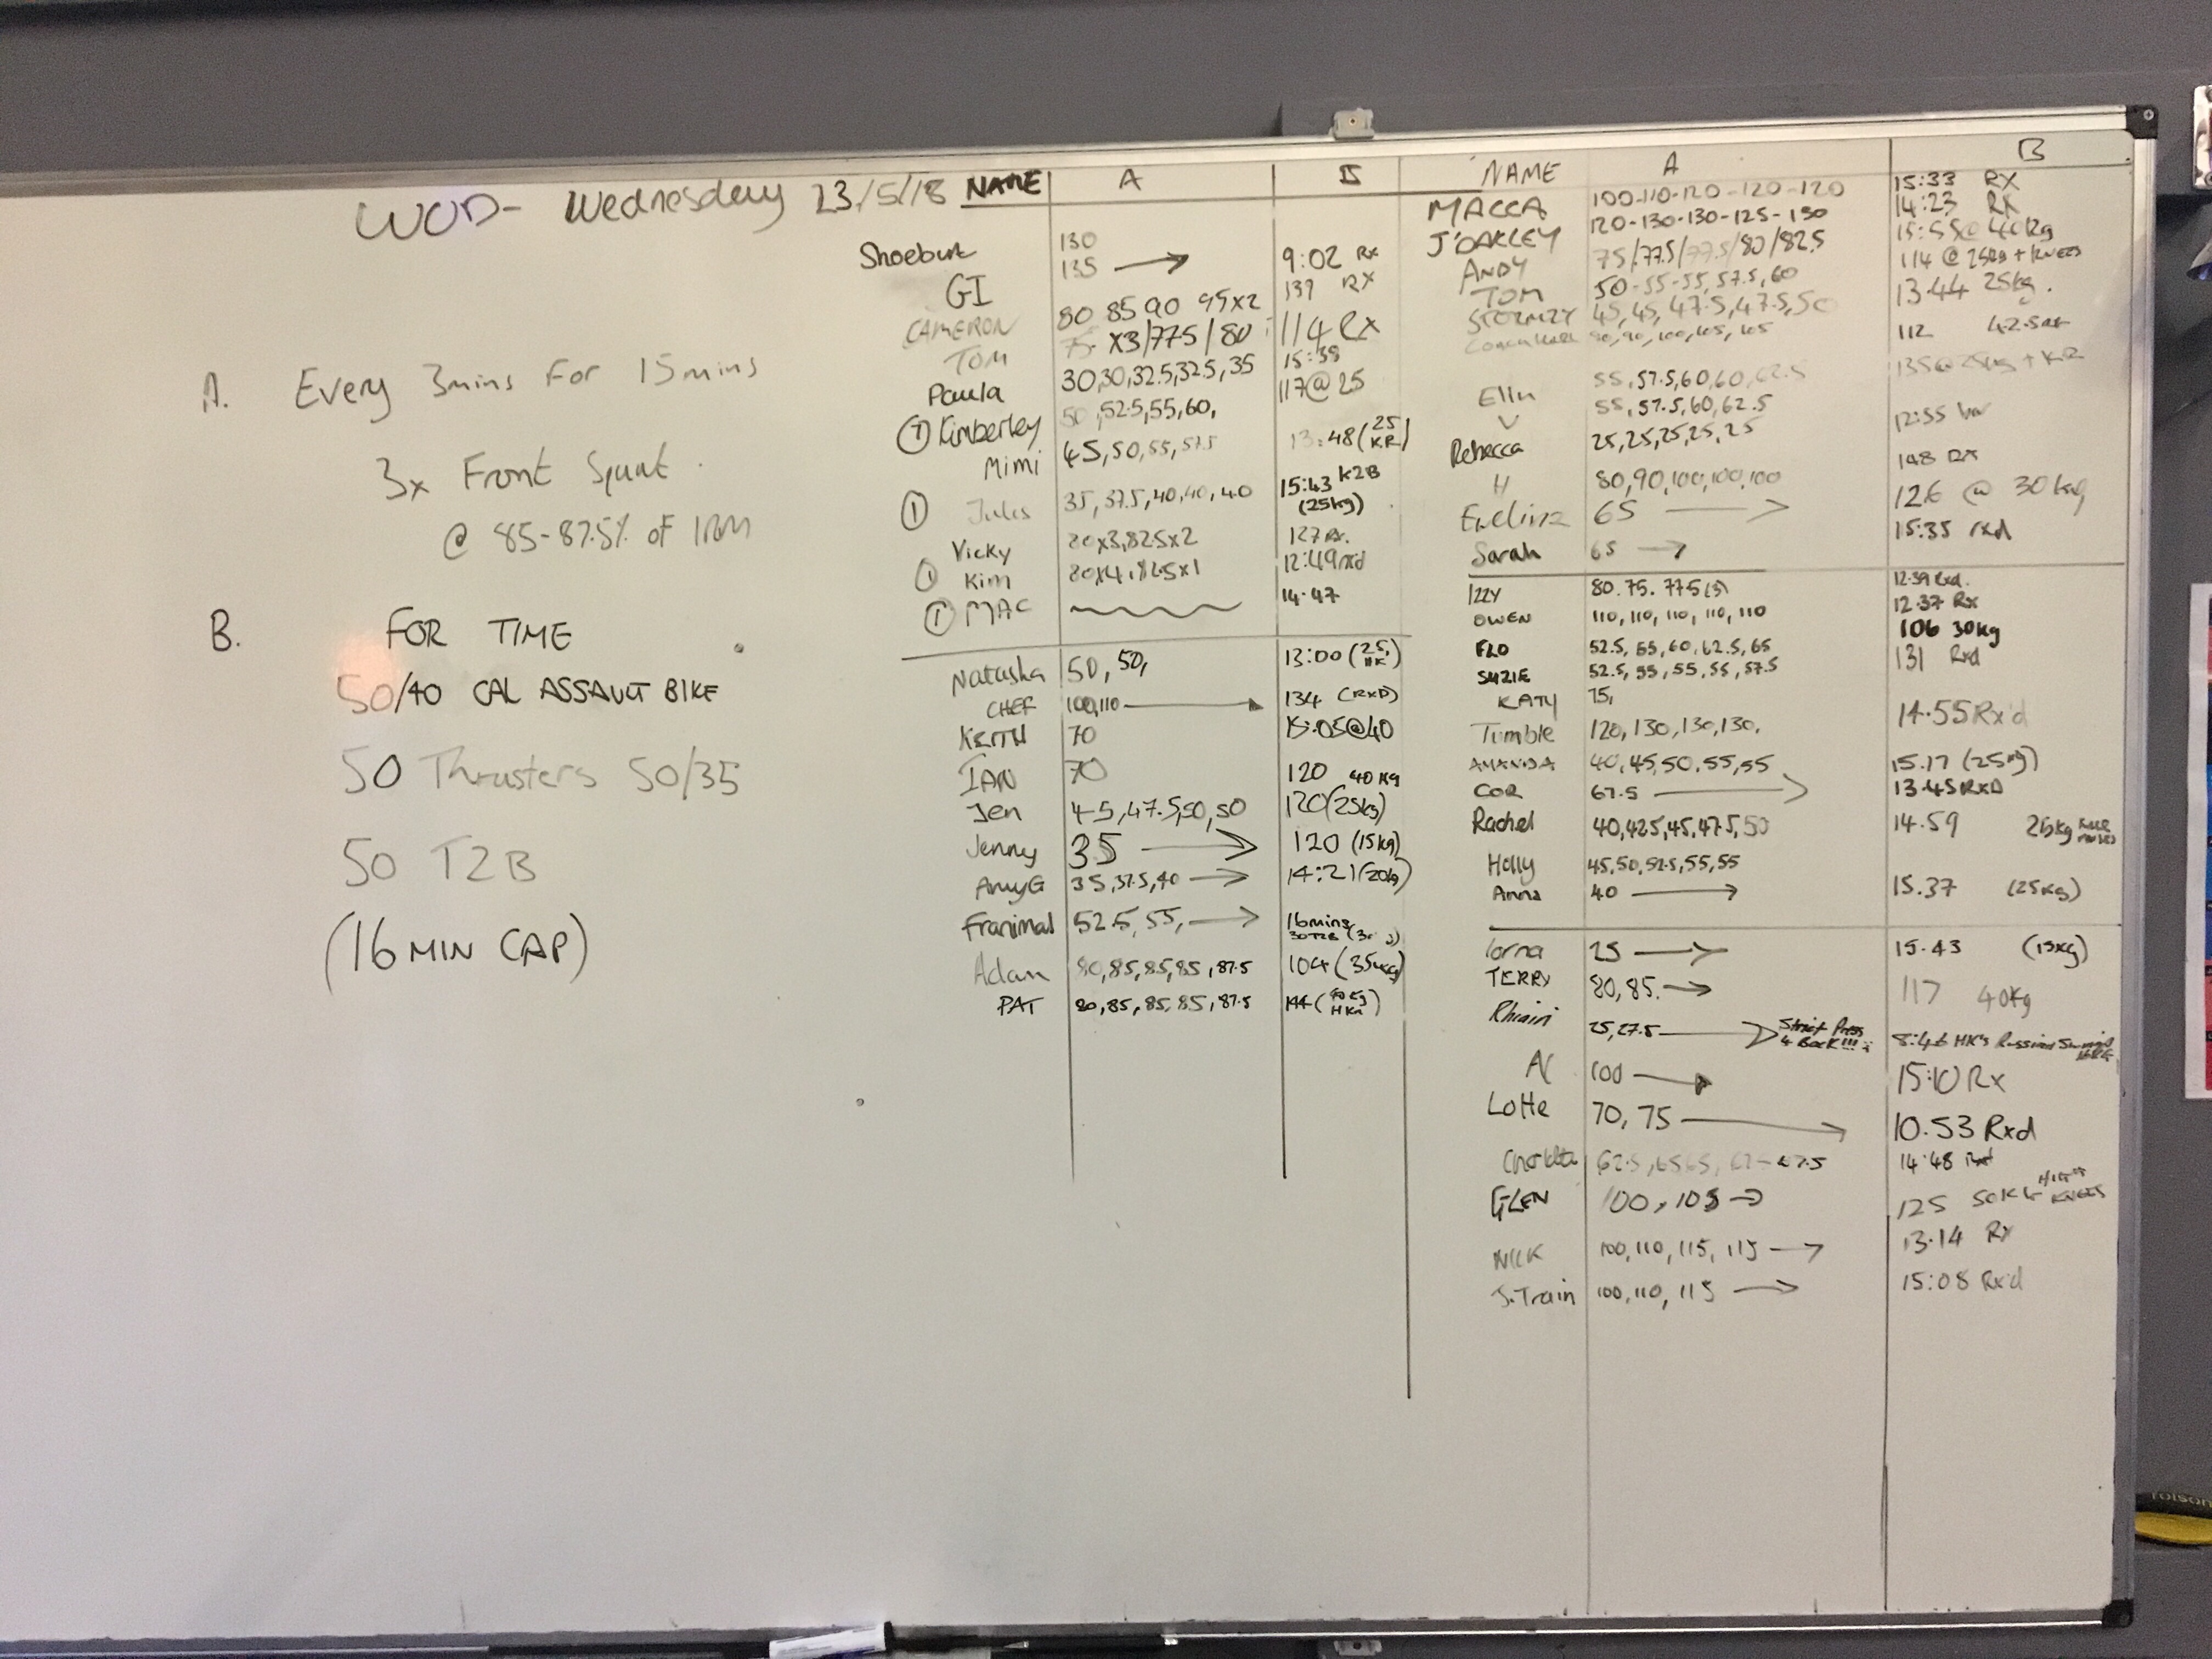 WOD- Wednesday 23/5/18
A. Every 3mins For 15mins
3x Front Squat.
@ 85-87.5% of 1RM
B. FOR TIME
50/40 CAL ASSAULT BIKE
50 Thrusters 50/35
50 T2B
(16 MIN CAP)
NAME A B
130
135 → 9:02 Rx
GI 139 RX
CAMERON 80 85 90 95x2 114 Rx
TOM 75 x3/77.5/80 15:38
Paula 30,30,32.5,32.5,35 117@25
① Kimberley 50,52.5,55,60,
Mimi 45,50,55,57.5 13:48 (25 KR)
① Jules 35,37.5,40,40,40 15:43 K2B (25kg)
Vicky 80x3,82.5x2 127 Rx.
① Kim 80x4,82.5x1 12:49 rxd
① MAC 14.47
Natasha 50, 50, 13:00 (25, HK)
CHEF 100,110 → 134 (RXD)
KEITH 70 15:05@40
IAN 70 120 40Kg
Jen 45,47.5,50,50 120 (25kg)
Jenny 35 → 120 (15kg)
AmyG 35,37.5,40 → 14:21 (20kg)
Franimal 52.5, 55, → 16mins 30T2B
Adam 80,85,85,85,87.5 104 (35kg)
PAT 80,85,85,85,87.5 144 (40kg)
NAME A B
MACCA 100-110-120-120-120 15:33 RX
J'OAKLEY 120-130-130-125-130 14:23 RX
ANDY 75/77.5/77.5/80/82.5 15:55@40kg
TOM 50-55-55,57.5,60 114 @ 25kg + KNEES
STORMZY 45,45,47.5,47.5,50 13.44 25kg.
90,90,100,105,105 112
55,57.5,60,60,62.5 135@25kg + KR
55,57.5,60,62.5 12:55
Rebecca 25,25,25,25,25
H 80,90,100,100,100 148 RX
Evelina 65 → 126 @ 30kg
Sarah 65 → 15:35 rxd
IZZY 80. 75. 77.5(3) 12:39 Rxd.
OWEN 110, 110, 110, 110, 110 12.37 Rx
FLO 52.5, 55, 60, 62.5, 65 106 30kg
SUZIE 52.5, 55, 55, 55, 57.5 131 Rxd
KATY 75,
Tumble 120, 130, 130, 130, 14.55 Rx'd
AMANDA 40,45,50,55,55 15.17 (25kg)
COR 67.5 → 13.45 RXD
Rachel 40,42.5,45,47.5,50 14.59 25kg
Holly 45,50,52.5,55,55
Anna 40 → 15.37 (25kg)
lorna 25 → 15.43 (15kg)
TERRY 80,85. → 117 40kg
Rhiain 25,27.5 → Strict Press & Back!!! 8:46 HK's Russian Swings
AC 100 → 15:10 Rx
Lotte 70, 75 → 10.53 Rxd
62.5, 67.5 14:48
GLEN 100, 105 → 125 50KG HIGH KNEES
NICK 100,110,115,115 → 13.14 Rx
J.Train 100,110,115 → 15:08 Rx'd